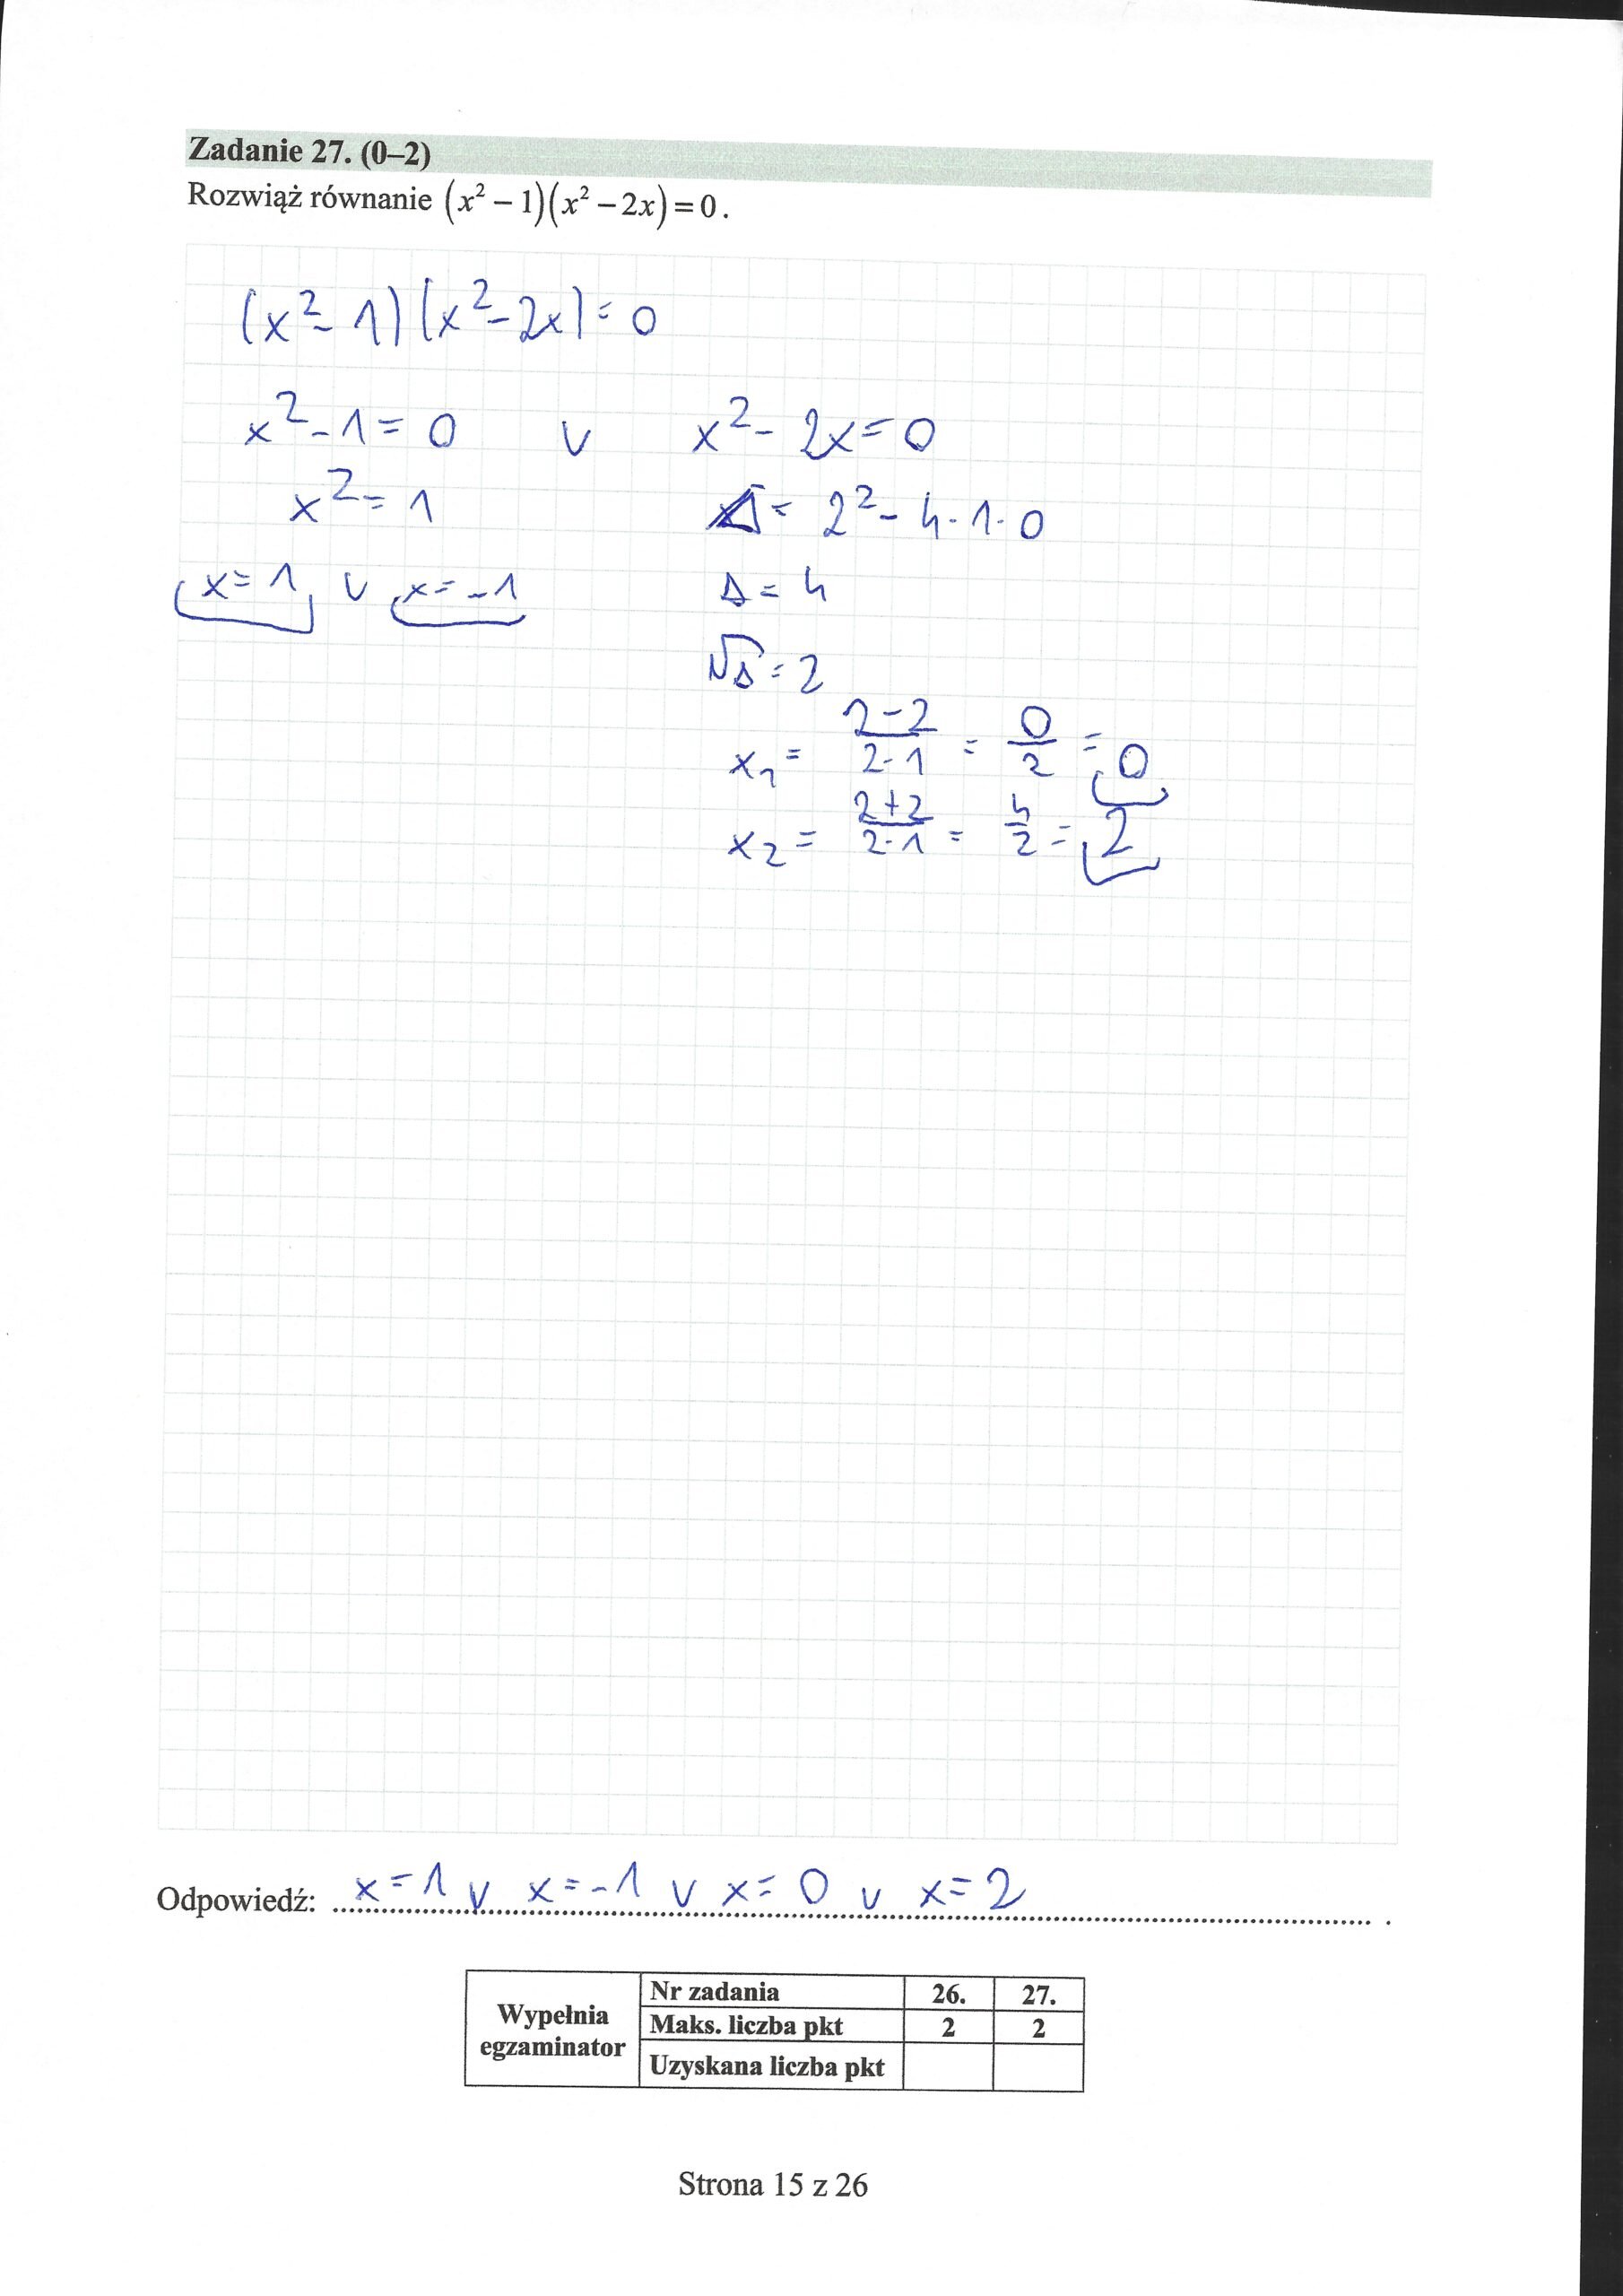 Zadanie 27. (0–2)
Rozwiąż równanie (x² – 1)(x² – 2x) = 0.
(x² - 1)(x² - 2x) = 0
x² - 1 = 0 v x² - 2x = 0
x² = 1 Δ = 2² - 4·1·0
x = 1 v x = -1 Δ = 4
√Δ = 2
x₁ = (2-2)/(2·1) = 0/2 = 0
x₂ = (2+2)/(2·1) = 4/2 = 2
Odpowiedź: x = 1 v x = -1 v x = 0 v x = 2
Wypełnia egzaminator
Nr zadania 26. 27.
Maks. liczba pkt 2 2
Uzyskana liczba pkt
Strona 15 z 26